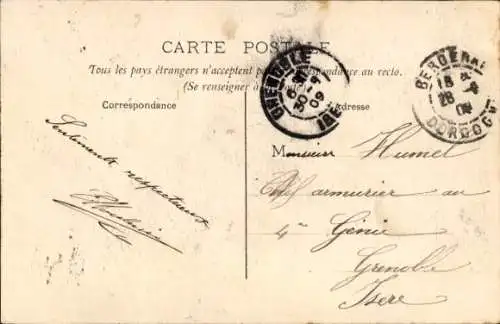 CARTE POSTALE
Tous les pays étrangers n'acceptent pas la correspondance au recto.
(Se renseigner à la
Correspondance
Adresse
GRENOBLE
30 -9
09
ISERE
BERGERAC
28
09
DORDOGNE
Sentiments respectueux
Monsieur Humel
Chef armurier au
4e Génie
Grenoble
Isère